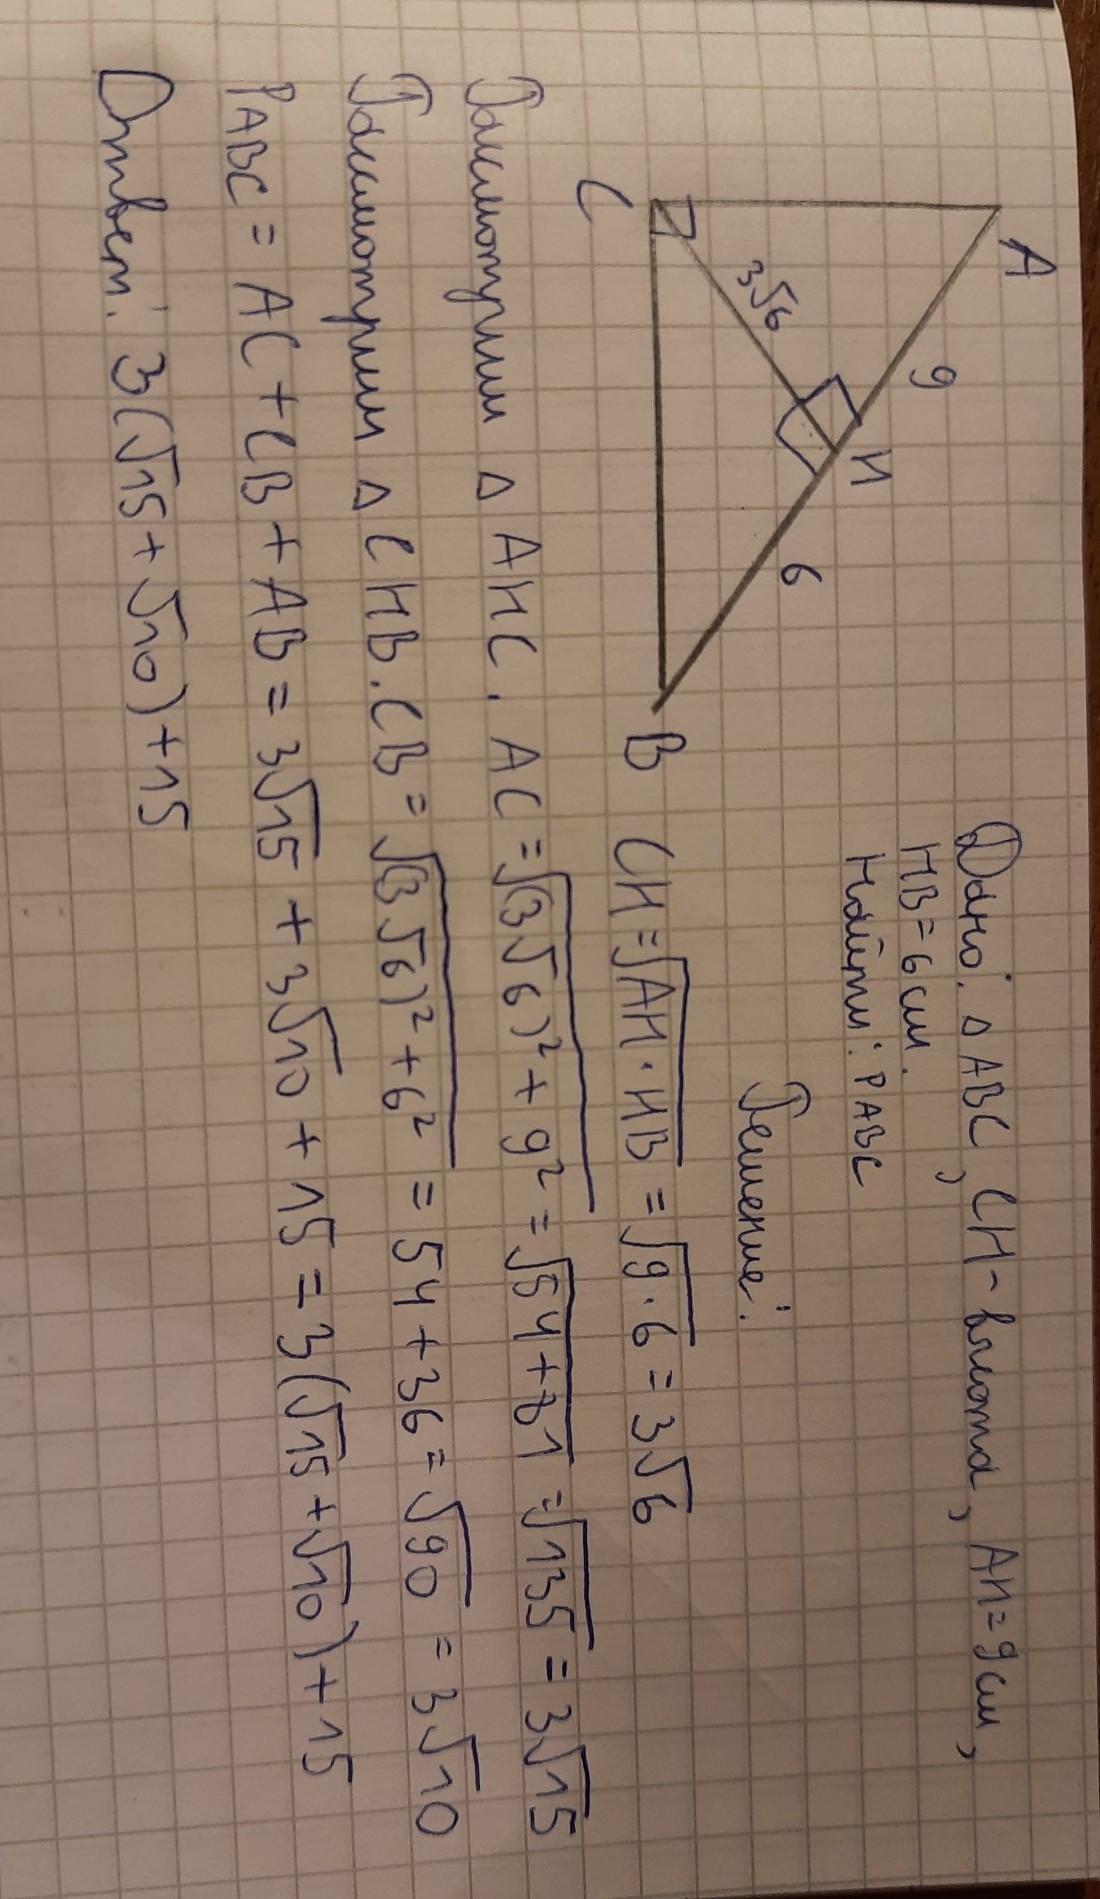 Дано: △ ABC, CH - высота, AH = 9 см,
HB = 6 см.
Найти: PABC
A
9
H
3√6
6
C
B
Решение:
CH = √AH · HB = √9 · 6 = 3√6
Рассмотрим △ AHC. AC = √(3√6)² + 9² = √54 + 81 = √135 = 3√15
Рассмотрим △ CHB. CB = √(3√6)² + 6² = 54 + 36 = √90 = 3√10
PABC = AC + CB + AB = 3√15 + 3√10 + 15 = 3(√15 + √10) + 15
Ответ: 3(√15 + √10) + 15